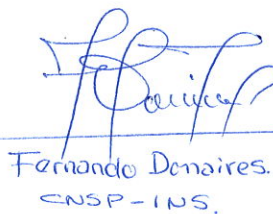 Fernando Donaires.
CNSP-INS.